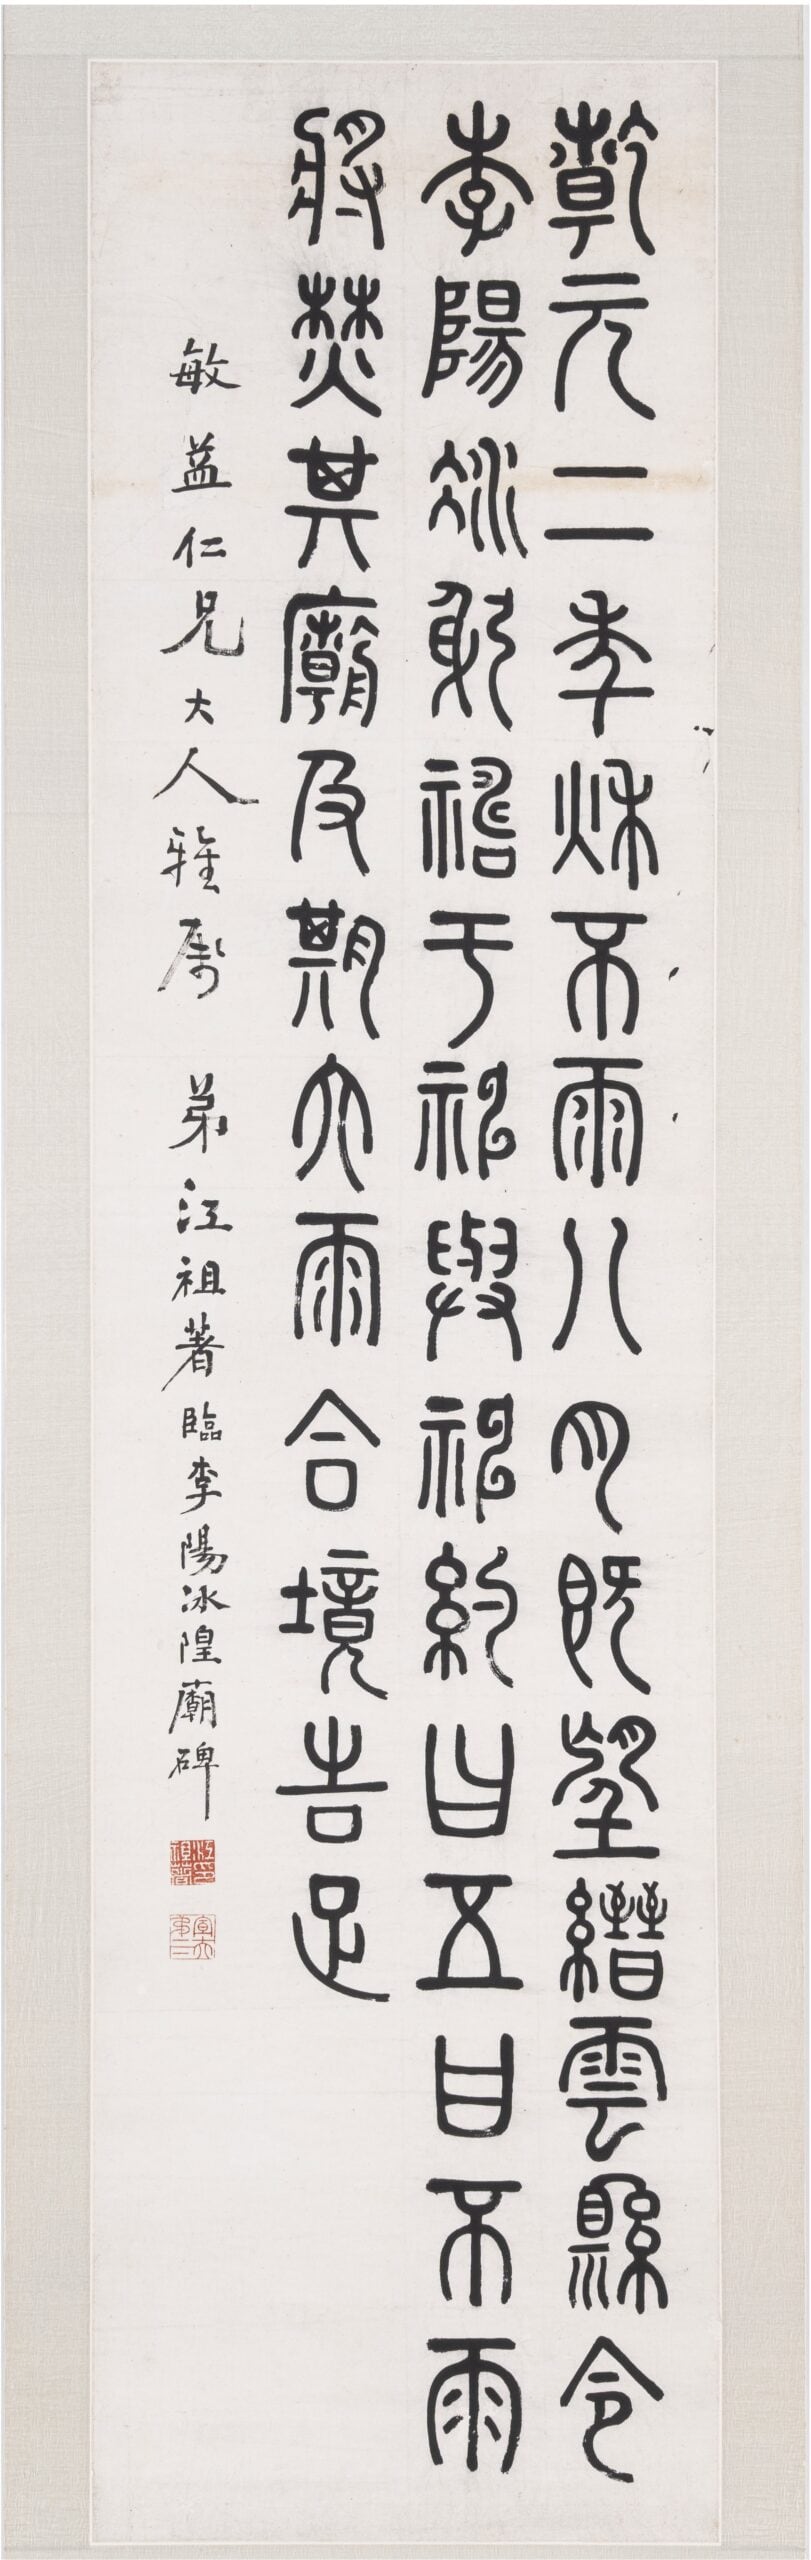 乾元二年秋不雨八月既望縉雲縣令
李陽冰躬禱于神與神約曰五日不雨
將焚其廟及期大雨合境告足
敏益仁兄大人雅屬 弟江祖著臨李陽冰隍廟碑
江印祖著